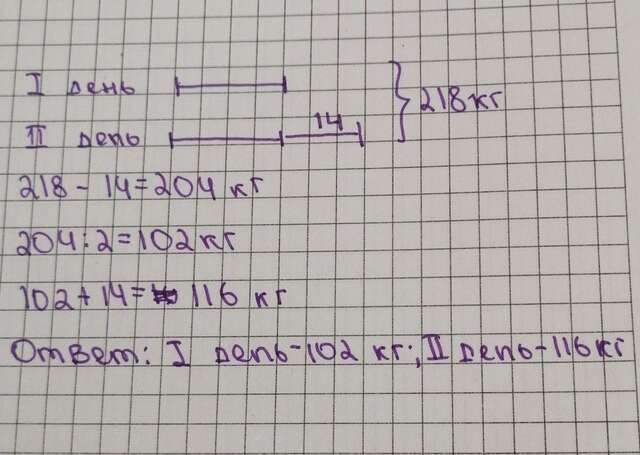 I день
218 кг
II день 14
218 - 14 = 204 кг
204 : 2 = 102 кг
102 + 14 = 116 кг
Ответ: I день - 102 кг; II день - 116 кг